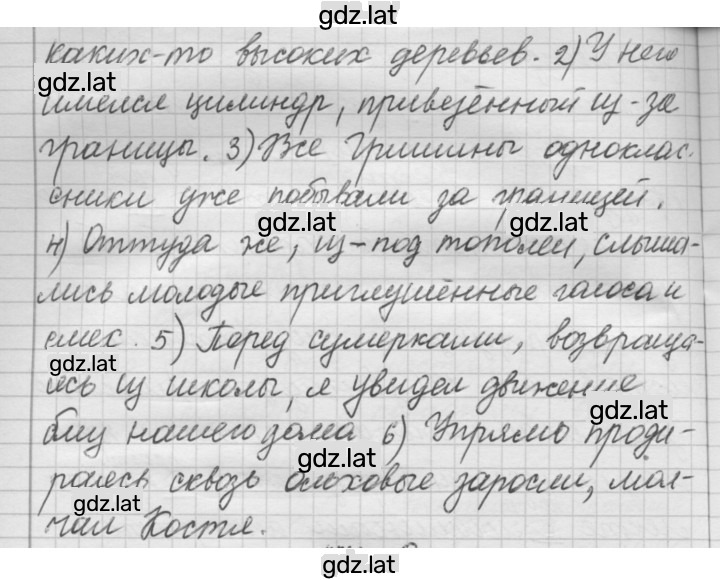 gdz.lat
каких-то высоких деревьев. 2) У него
gdz.lat
имелся цилиндр, привезённый из-за
границы. 3) Все Гришины одноклас-
сники уже побывали за границей.
gdz.lat gdz.lat
4) Оттуда же, из-под тополей, слыша-
лись молодые приглушённые голоса и
смех. 5) Перед сумерками, возвраща-
gdz.lat
ясь из школы, я увидел движение
gdz.lat
близ нашего дома 6) Упрямо проди-
gdz.lat
раясь сквозь ольховые заросли, мол-
gdz.lat
чал Костя.
gdz.lat